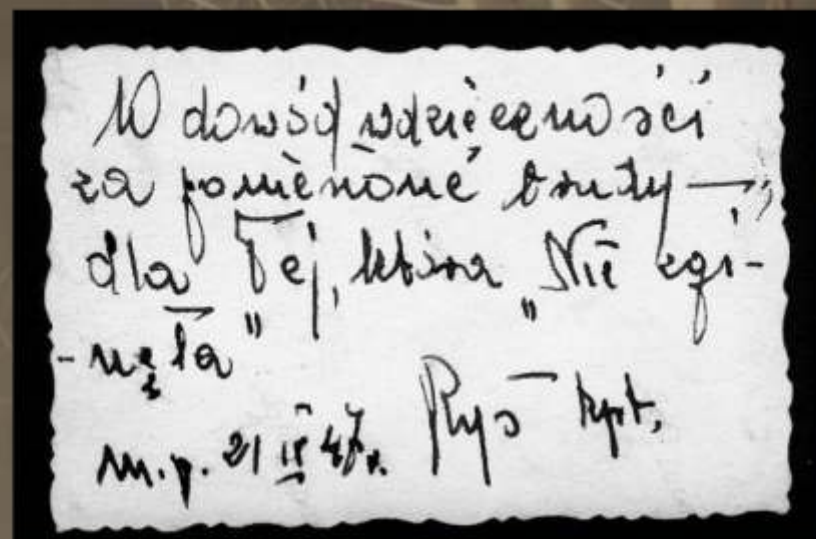 W dowód wdzięczności
za poniesione trudy —
dla Tej, która „Nie zgi-
-nęła"
m.p. 21 IX 47r. Ryś kpt.